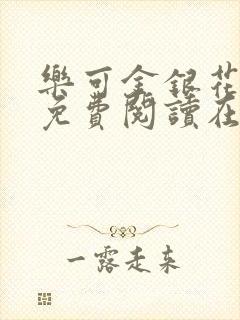 樂可金銀花
免費閱讀在
一露走来